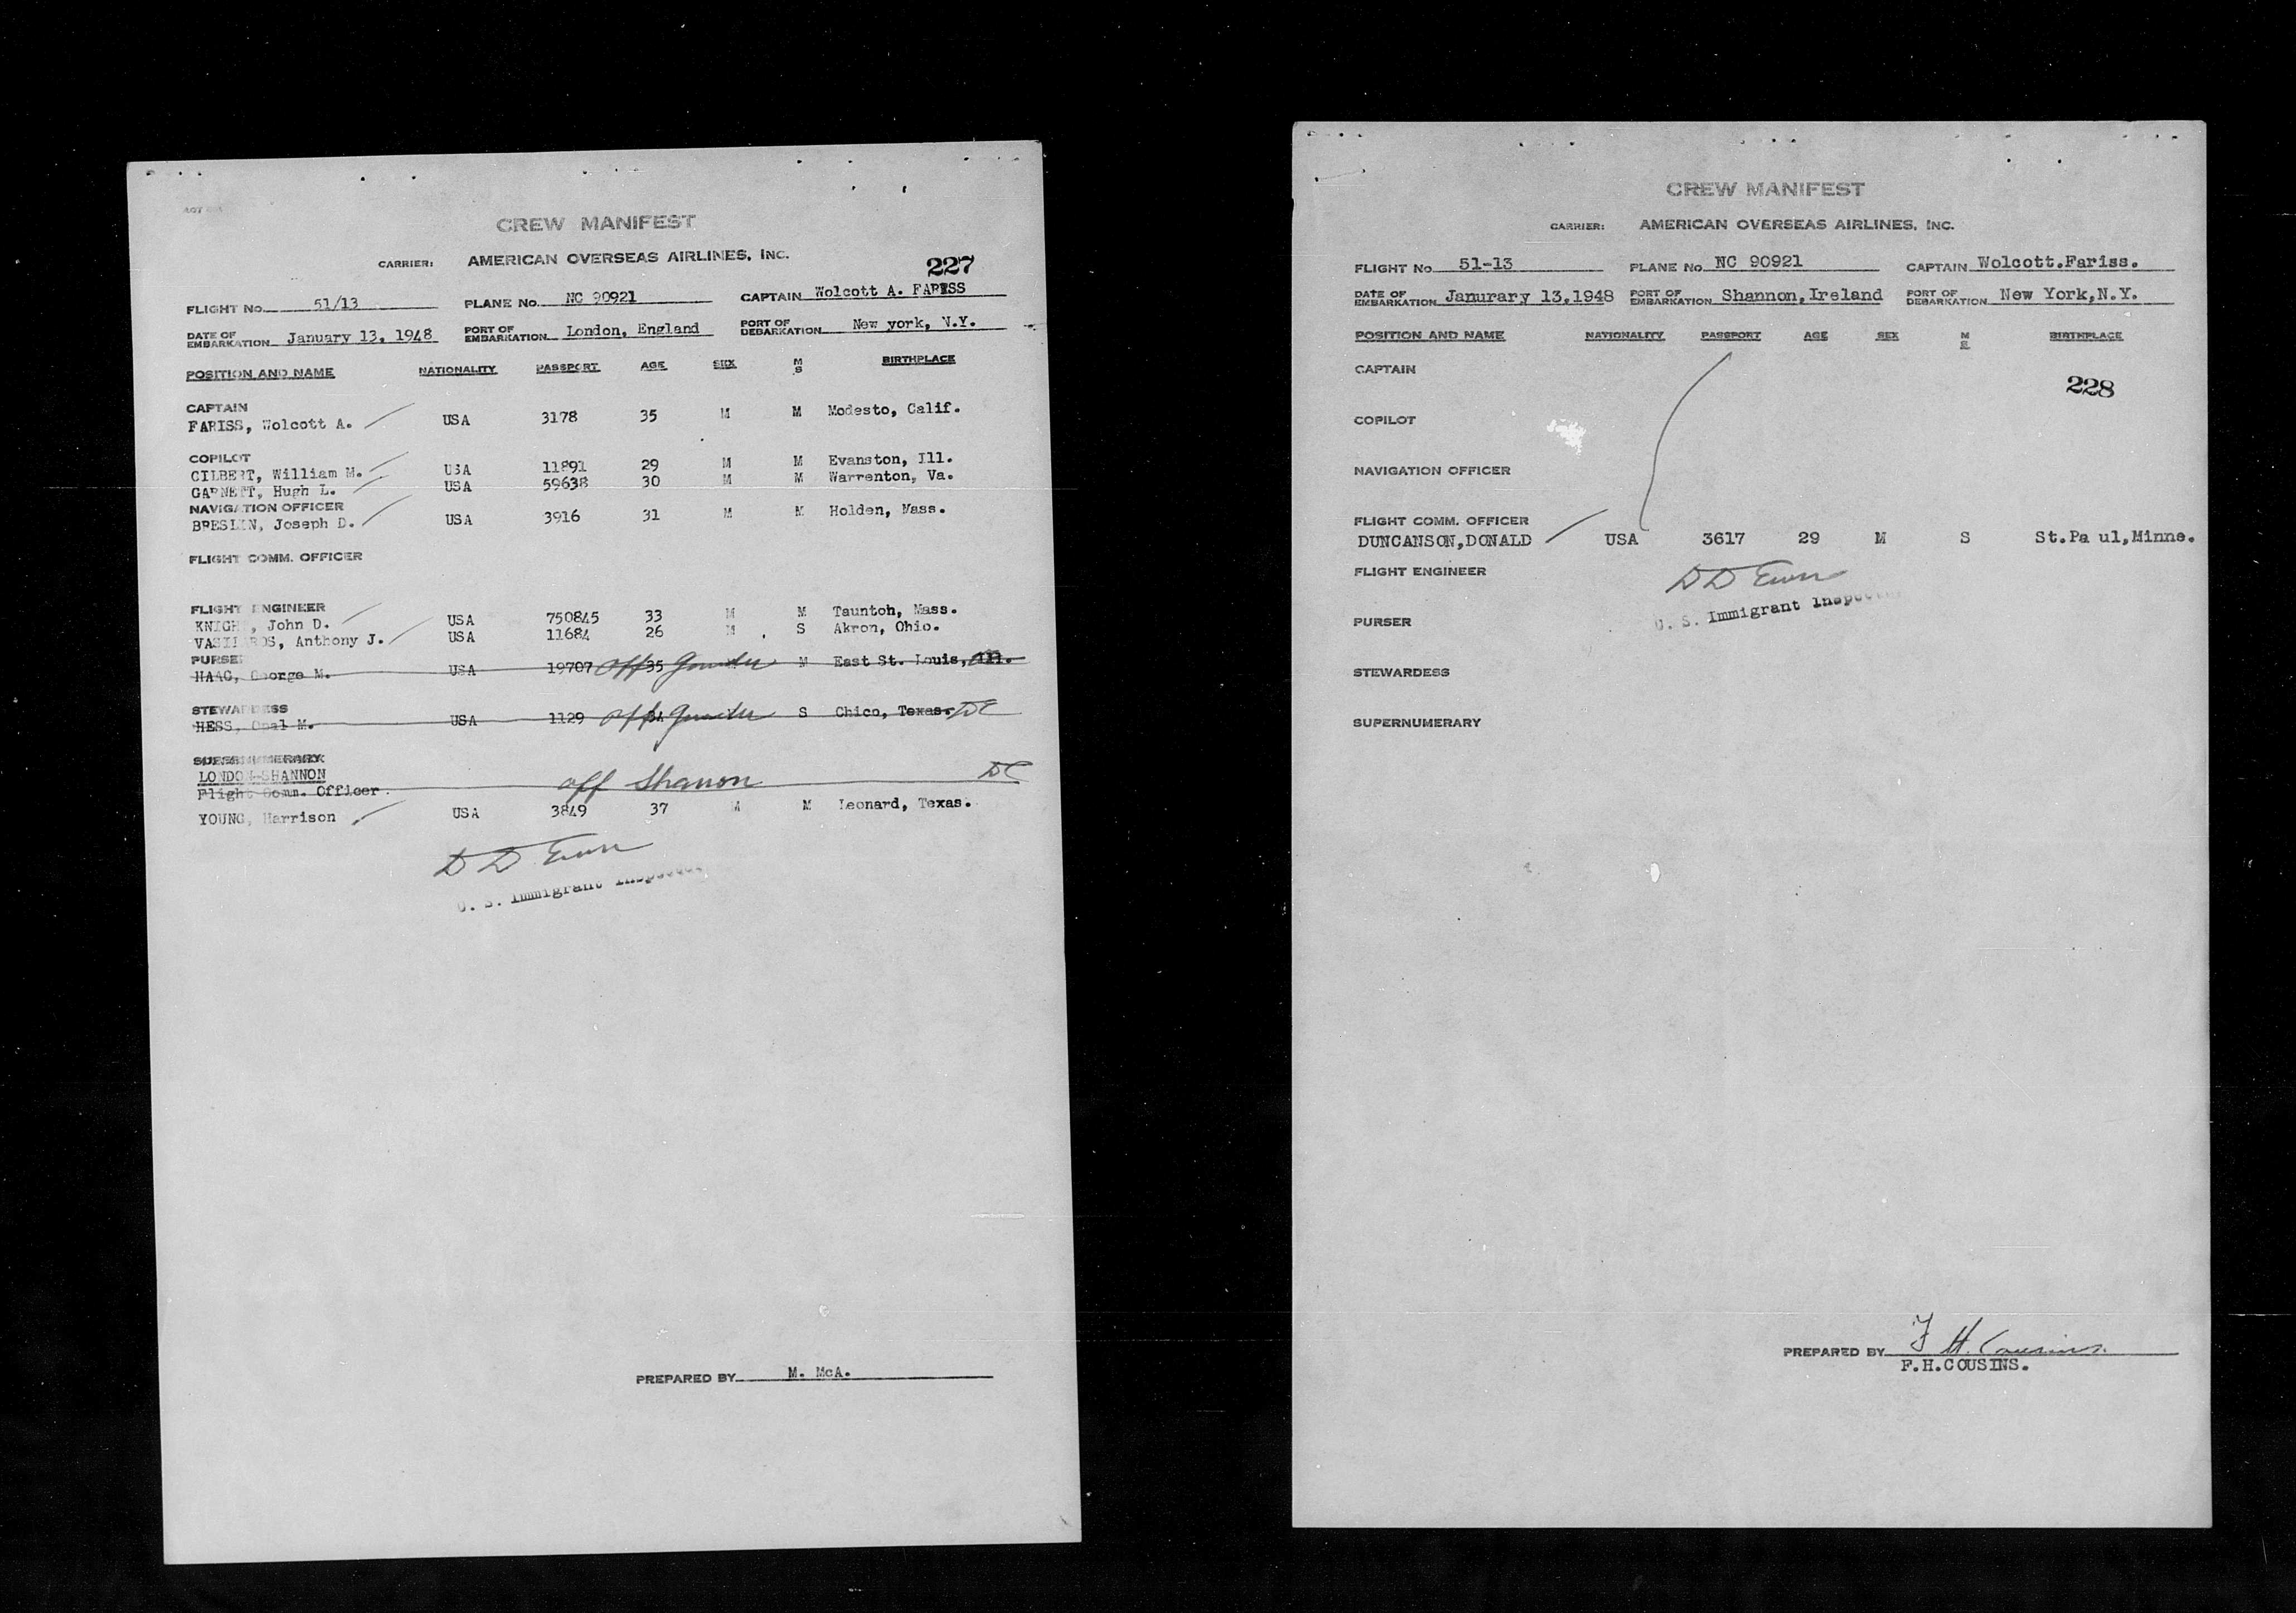 CREW MANIFEST
CARRIER: AMERICAN OVERSEAS AIRLINES, INC.
227
FLIGHT No. 51/13 PLANE No. NC 90921 CAPTAIN Wolcott A. FARISS
DATE OF EMBARKATION January 13, 1948 PORT OF EMBARKATION London, England PORT OF DEBARKATION New york, N.Y.
POSITION AND NAME NATIONALITY PASSPORT AGE SEX M S BIRTHPLACE
CAPTAIN
FARISS, Wolcott A. USA 3178 35 M M Modesto, Calif.
COPILOT
GILBERT, William M. USA 11891 29 M M Evanston, Ill.
GARNETT, Hugh L. USA 59638 30 M M Warrenton, Va.
NAVIGATION OFFICER
BRESLIN, Joseph D. USA 3916 31 M M Holden, Mass.
FLIGHT COMM. OFFICER
FLIGHT ENGINEER
KNIGHT, John D. USA 750845 33 M M Taunton, Mass.
VASILAROS, Anthony J. USA 11684 26 M S Akron, Ohio.
PURSER
HAAG, George M. USA 19707 off 35 M East St. Louis, Ill.
STEWARDESS
HESS, Opal M. USA 1129 off S Chico, Texas.
SUPERNUMERARY
LONDON-SHANNON
Flight Comm. Officer off Shanon
YOUNG, Harrison USA 3849 37 M M Leonard, Texas.
U. S. Immigrant Inspector
PREPARED BY M. McA.
CREW MANIFEST
CARRIER: AMERICAN OVERSEAS AIRLINES, INC.
FLIGHT No 51-13 PLANE No. NC 90921 CAPTAIN Wolcott.Fariss.
DATE OF EMBARKATION Janurary 13,1948 PORT OF EMBARKATION Shannon,Ireland PORT OF DEBARKATION New York,N.Y.
POSITION AND NAME NATIONALITY PASSPORT AGE SEX M S BIRTHPLACE
CAPTAIN
228
COPILOT
NAVIGATION OFFICER
FLIGHT COMM. OFFICER
DUNCANSON,DONALD USA 3617 29 M S St.Pa ul,Minne.
FLIGHT ENGINEER
PURSER
U. S. Immigrant Inspector
STEWARDESS
SUPERNUMERARY
PREPARED BY F H. Cousins.
F.H.COUSINS.